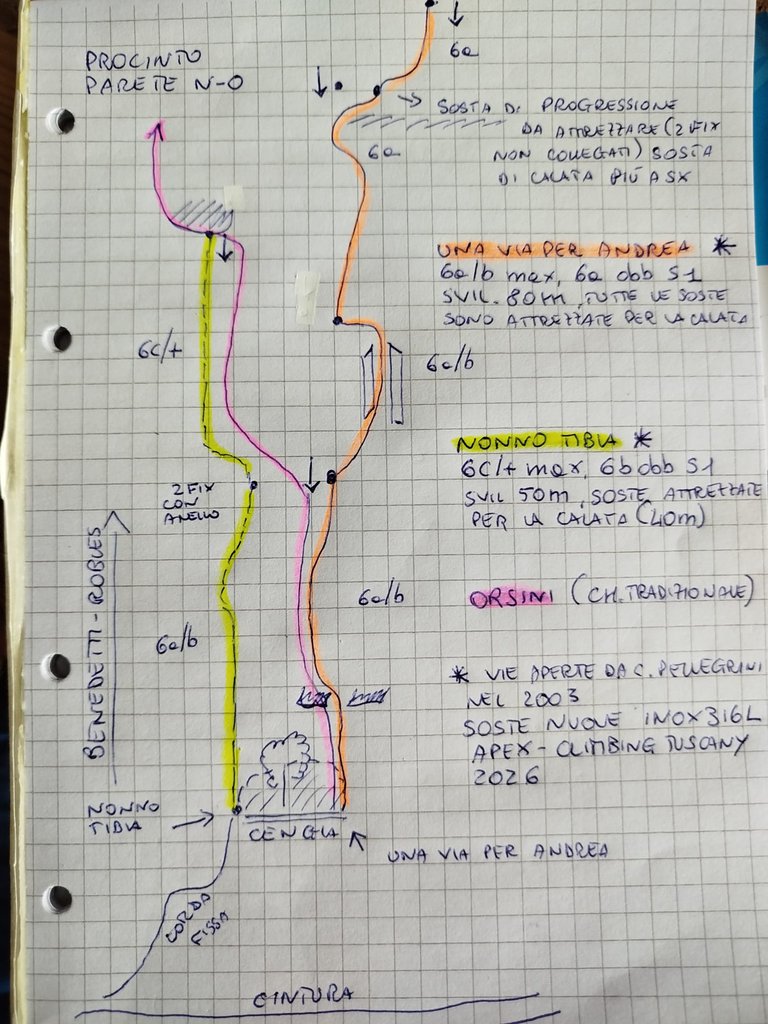 PROCINTO
PARETE N-O
6a
SOSTA DI PROGRESSIONE
DA ATTREZZARE (2 FIX
NON COLLEGATI) SOSTA
DI CALATA PIÙ A SX
6a
UNA VIA PER ANDREA *
6a/b max, 6a obb S1
SVIL. 80m, TUTTE LE SOSTE
SONO ATTREZZATE PER LA CALATA
6c/+
6a/b
NONNO TIBIA *
6c/+ max, 6b obb S1
SVIL 50m, SOSTE ATTREZZATE
PER LA CALATA (40m)
2 FIX
CON
ANELLO
BENEDETTI-ROBLES
6a/b
ORSINI (CH. TRADIZIONALE)
6a/b
* VIE APERTE DA C. PELLEGRINI
NEL 2003
SOSTE NUOVE INOX 316L
APEX-CLIMBING TUSCANY
2026
NONNO
TIBIA
CENGIA
UNA VIA PER ANDREA
CORDA
FISSA
CINTURA